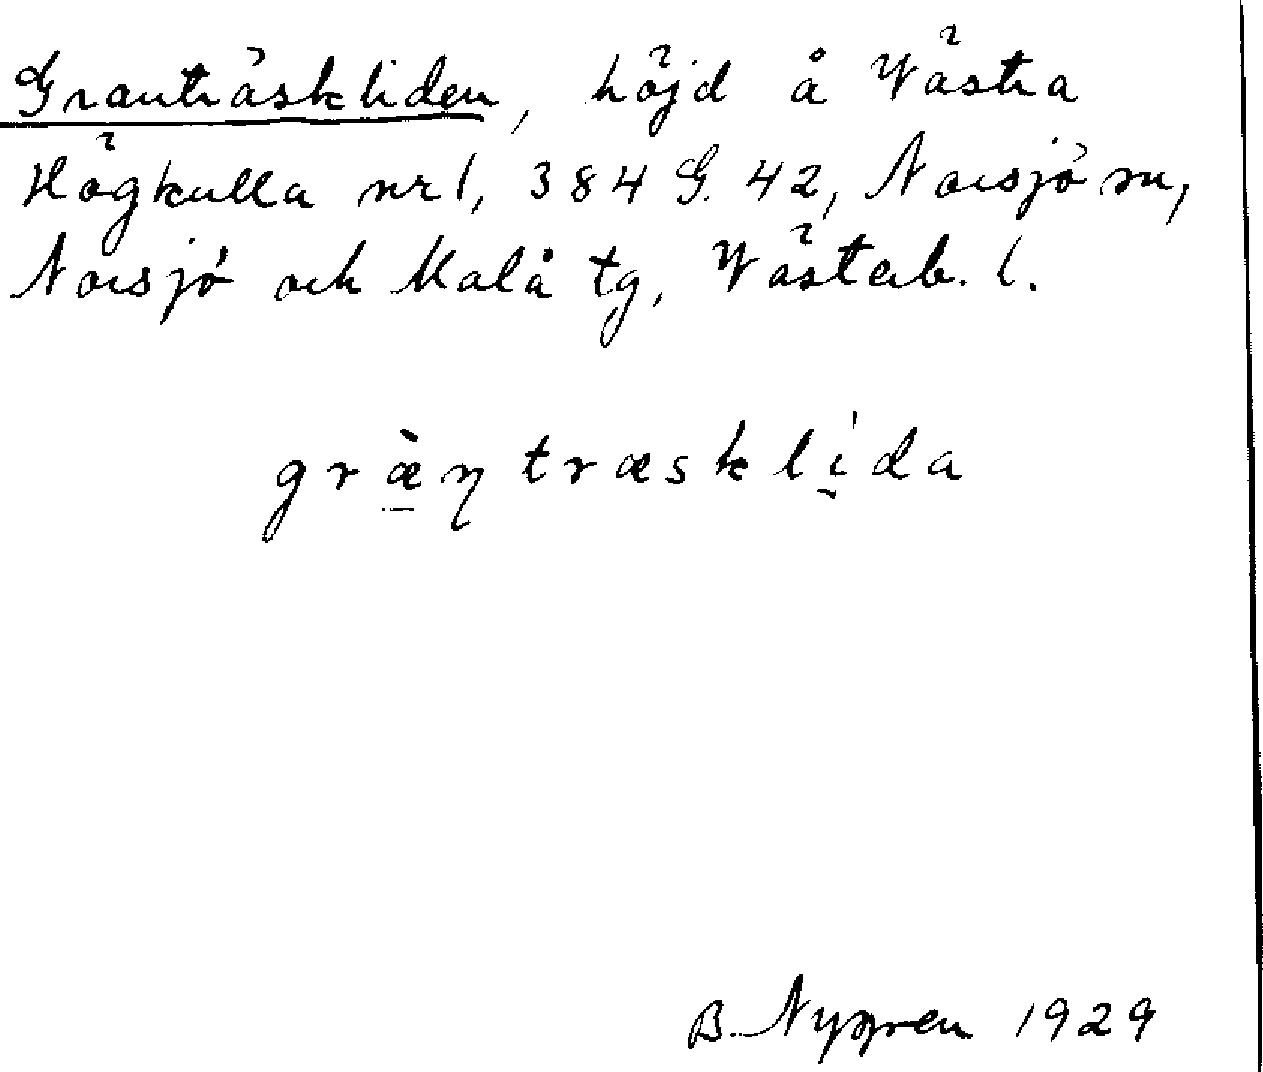 Granträskliden, höjd å Västra
Högkulla nr 1, 384 G. 42, Norsjö sn,
Norsjö och Malå tg, Västerb. l.
græ̱̀ŋtræsklḭ́da
B. Nygren 1929